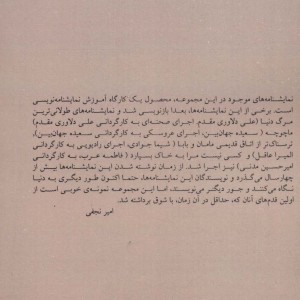 نمایشنامه‌های موجود در این مجموعه، محصول یک کارگاه آموزش نمایشنامه‌نویسی
است. برخی از این نمایشنامه‌ها، بعداً بازنویسی شد و نمایشنامه‌های طولانی‌ترین
مرگ دنیا (علی دلاوری مقدم، اجرای صحنه‌ای به کارگردانی علی دلاوری مقدم)
ماچوچه (سعیده جهان‌بین، اجرای عروسکی به کارگردانی سعیده جهان‌بین)،
ترسناک‌تر از اتاق قدیمی مامان و بابا (شیما جوادی، اجرای رادیویی به کارگردانی
المیرا عاقل) و کسی نیست مرا به خاک بسپارد (فاطمه عرب، به کارگردانی
امیرحسین مدنی) نیز اجرا شد. از زمان نوشته شدن این نمایشنامه‌ها بیش از
چهارسال می‌گذرد و نویسندگان این نمایشنامه‌ها، حتماً اکنون طور دیگری به دنیا
نگاه می‌کنند و جور دیگر می‌نویسند، اما این مجموعه نمونه‌ی خوبی است از
اولین قدم‌های آنان که، حداقل در آن زمان، با شوق برداشته شد.
امیر نجفی